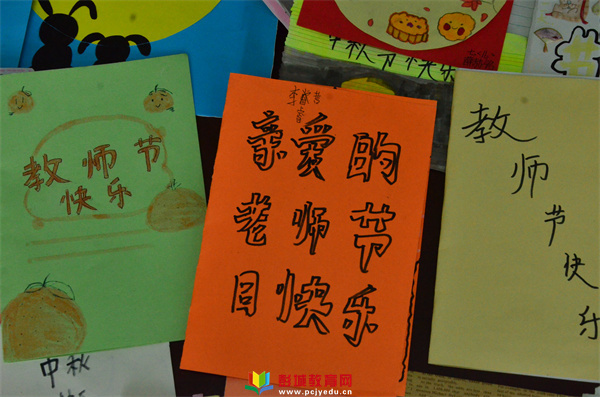 中秋节快乐
教师节
快乐
亲爱的
老师节
日快乐
教师节快乐
中秋
彭城教育网
www.pcjyedu.cn